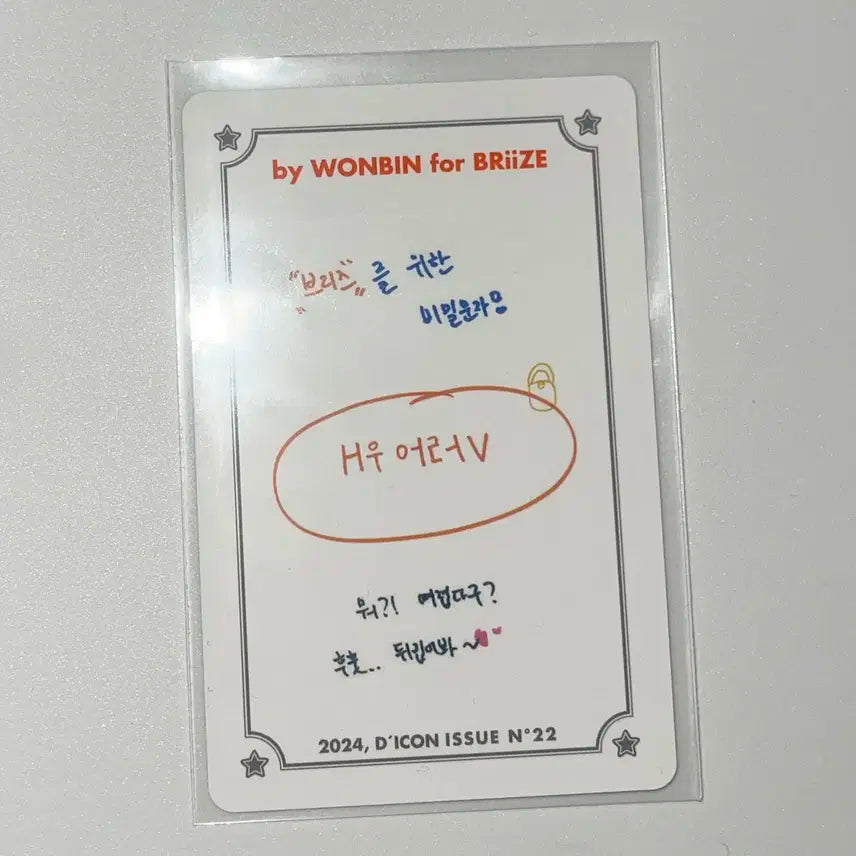 by WONBIN for BRiiZE
"브리즈"를 위한
비밀문자
H우 어러V
뭐?! 어렵다구?
후훗.. 뒤집어봐~
2024, D'ICON ISSUE N°22